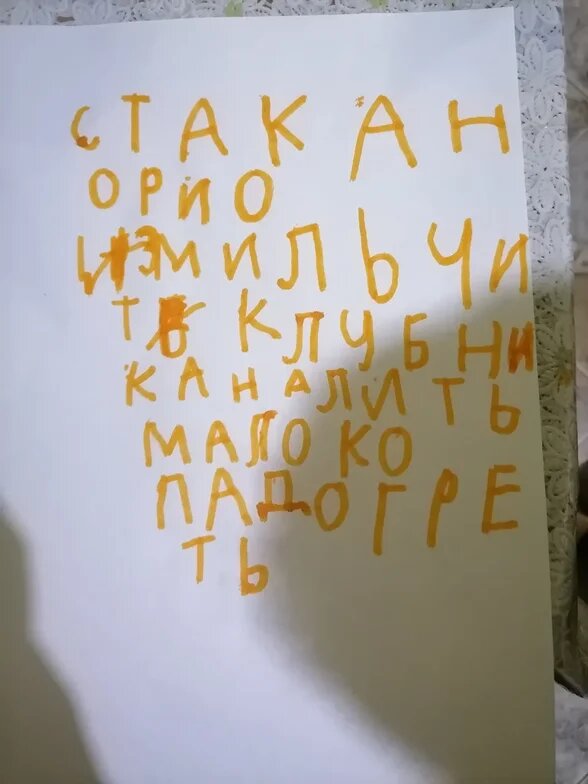 СТАКАН
ОРИО
ИЗМИЛЬЧИ
ТЬ КЛУБНИ
КА НАЛИТЬ
МАЛОКО
ПАДОГРЕ
ТЬ